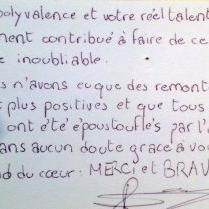 polyvalence et votre réel talent
ment contribué à faire de ce
e inoubliable.
s n'avons eu que des remont
t plus positives et que tous
ont été époustouflés par l'a
ans aucun doute grace à vou
d du cœur : MERCI et BRAV